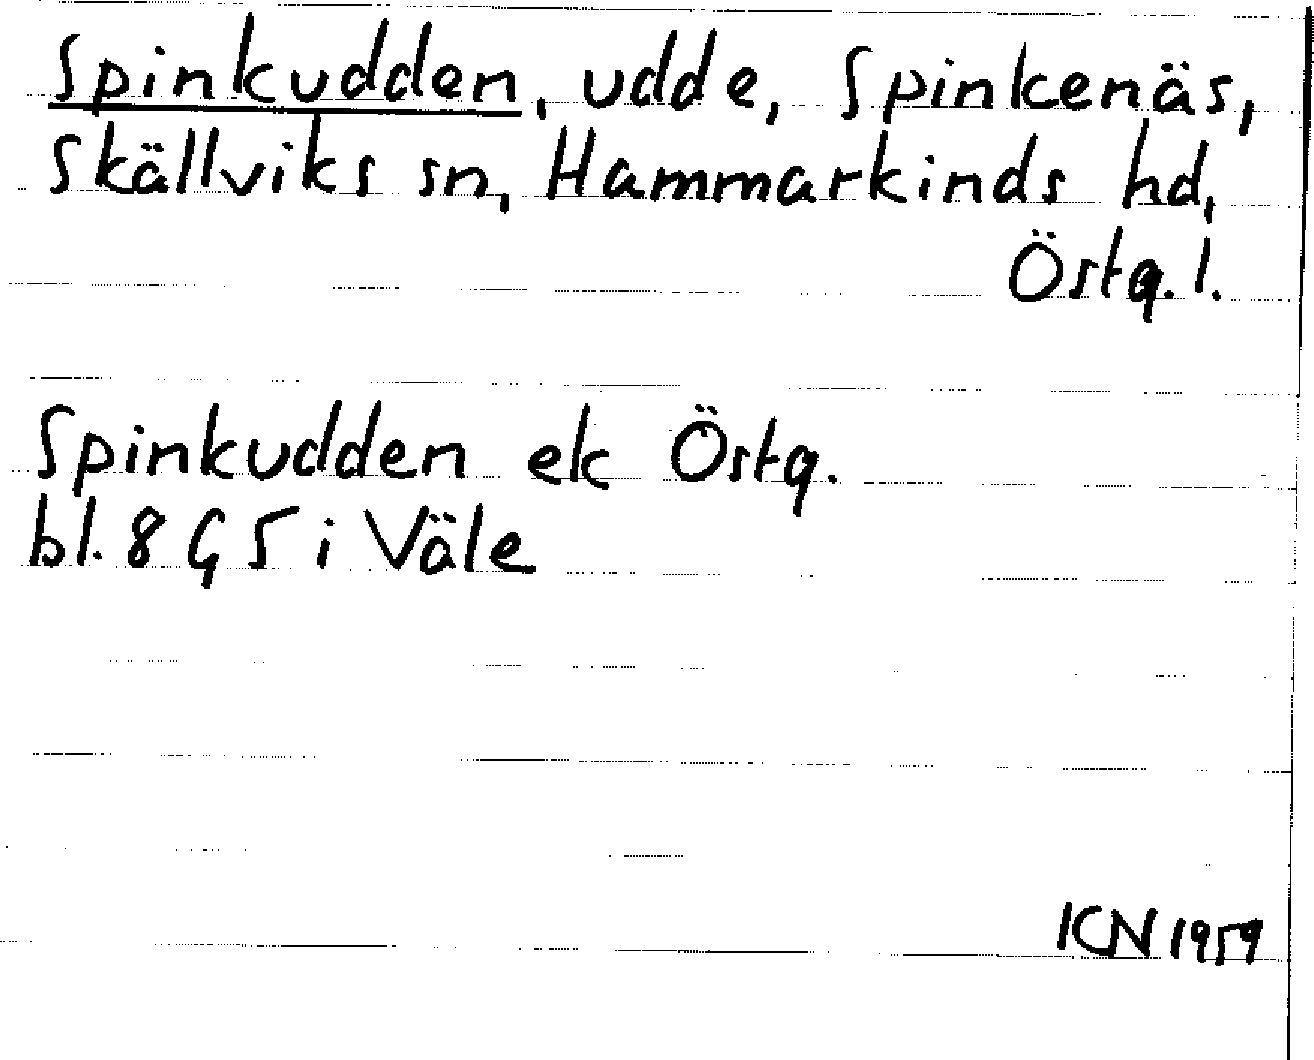 Spinkudden, udde, Spinkenäs,
Skällviks sn, Hammarkinds hd,
Östg. l.
Spinkudden ek Östg.
bl. 8 G 5 i Väle
KN 1959